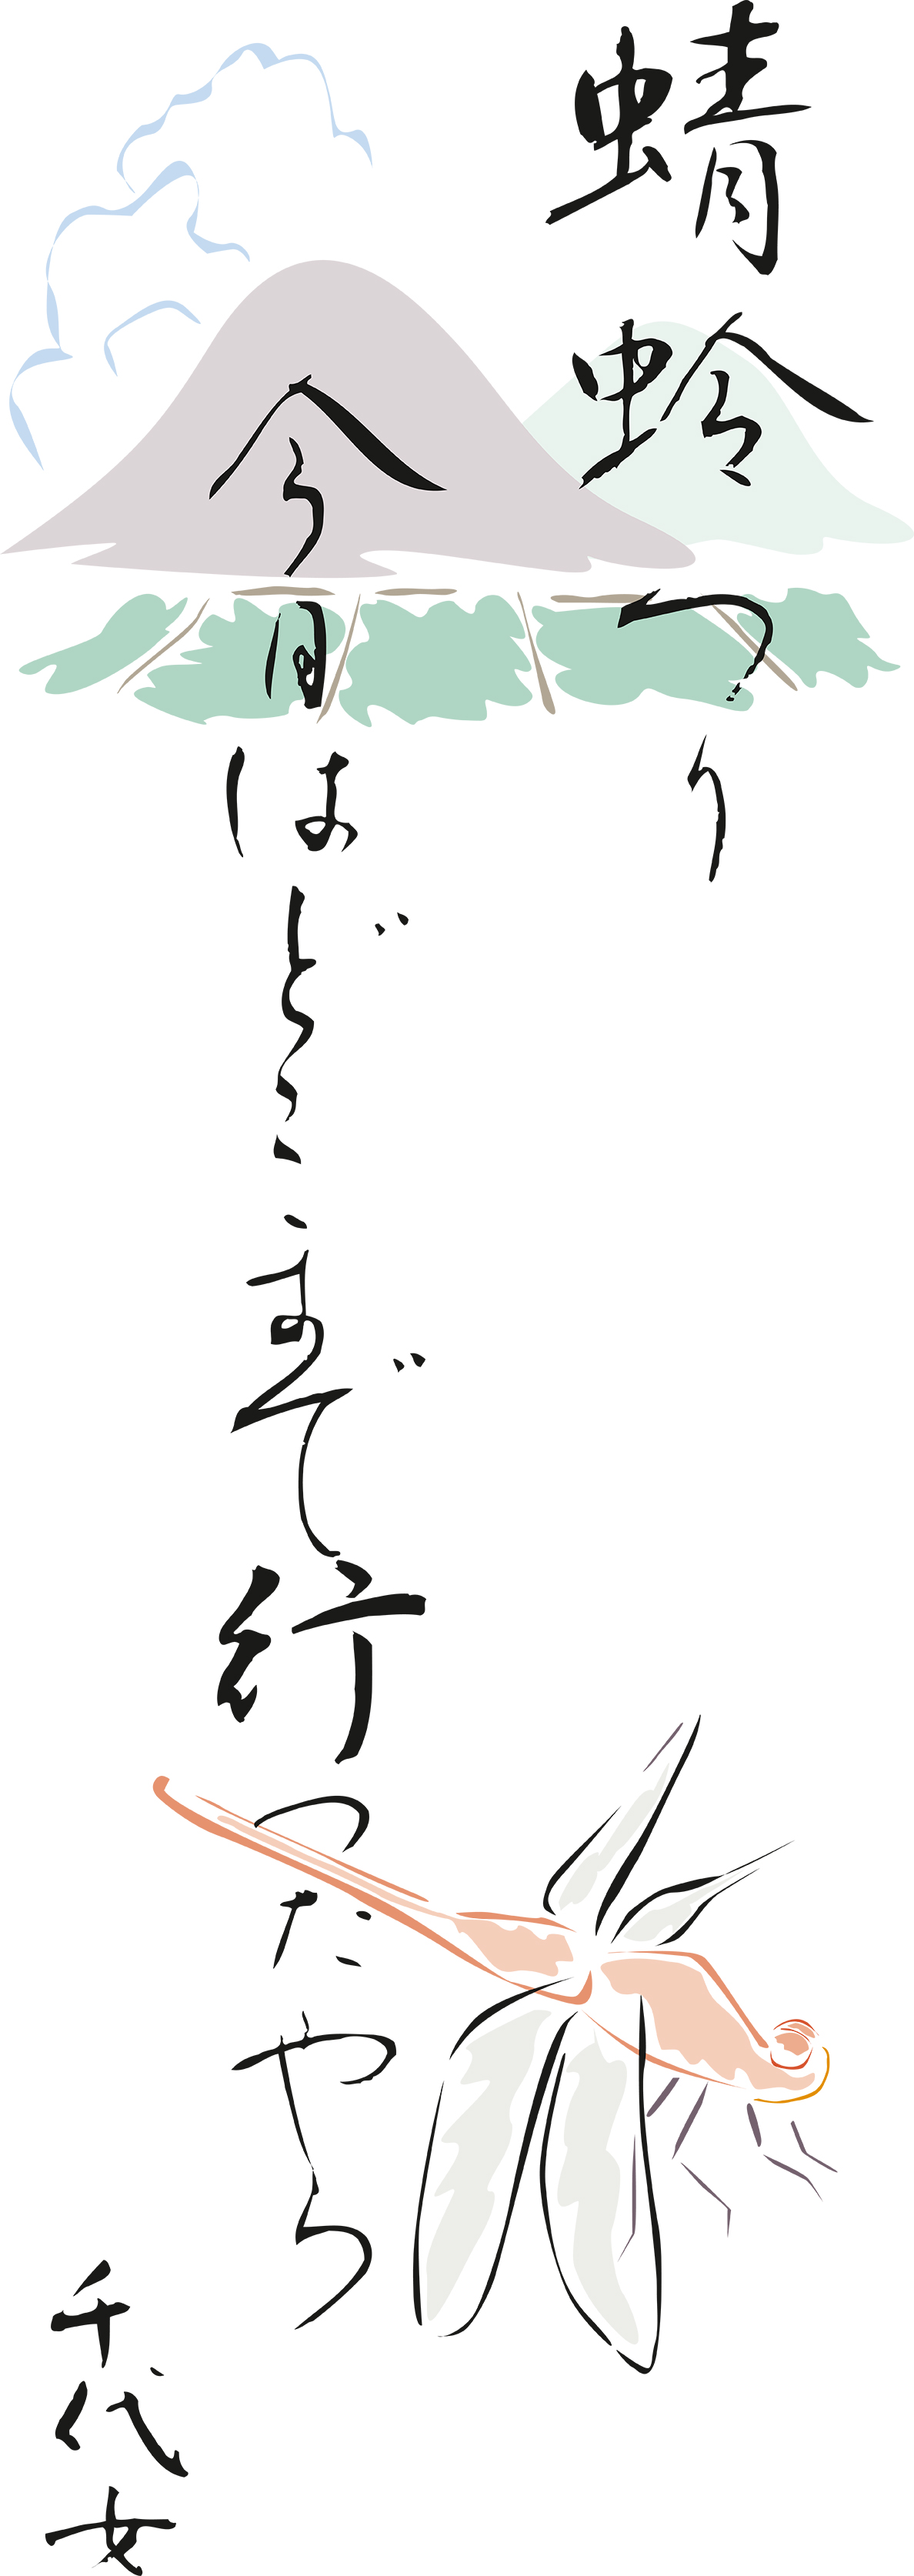 蜻蛉つり
今日はどこまで行つたやら
千代女